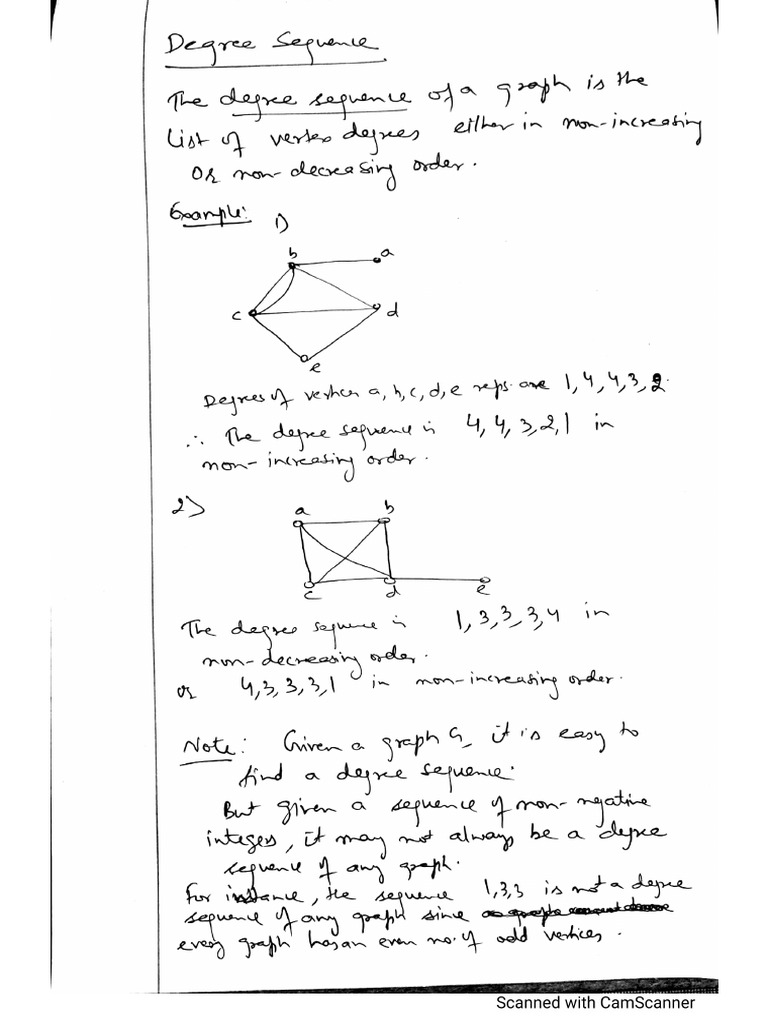 Degree Sequence
The degree sequence of a graph is the
list of vertex degrees either in non-increasing
or non-decreasing order.
Example: 1)
b a
c d
e
Degrees of vertices a, b, c, d, e resp. are 1, 4, 4, 3, 2.
∴ The degree sequence is 4, 4, 3, 2, 1 in
non-increasing order.
2)
a b
c d e
The degree sequence is 1, 3, 3, 3, 4 in
non-decreasing order.
or 4, 3, 3, 3, 1 in non-increasing order.
Note: Given a graph G, it is easy to
find a degree sequence.
But given a sequence of non-negative
integers, it may not always be a degree
sequence of any graph.
For instance, the sequence 1,3,3 is not a degree
sequence of any graph since
every graph has an even no. of odd vertices.
Scanned with CamScanner